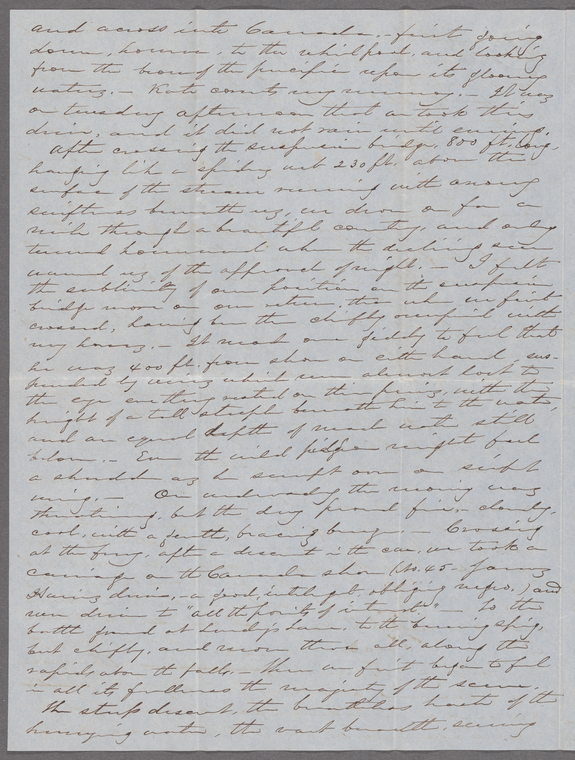 and across into Canada, - first going
down, however, to the whirlpool, and looking
from the brow of the precipice upon its gloomy
waters. - Kate counts my money. - It was
on tuesday afternoon that we took this
drive, and it did not rain until evening.
After crossing the suspension bridge, 800 ft. long,
hanging like a spider's web 230 ft. above the
surface of the stream running with
swiftness beneath us, we drove on for a
mile through a beautiful country, and only
turned homeward when the declining sun
warned us of the approach of night. - I felt
the sublimity of our position on the suspension
bridge more on our return, than when we first
crossed, having been then chiefly occupied with
my horses. - It made one giddy to feel that
he was 400 ft. from shore on each hand, sus-
pended by wires which were almost lost to
the eye, everything rested on them, with the
height of a tall steeple beneath him to the water,
and an equal depth of water still
below. - Even the wild pidgeon might feel
a shudder as he swept over on swift
wing. - On wednesday the morning was
threatening, but the day proved fine, - cloudy,
cool, with a gentle, bracing breeze - Crossing
at the ferry, after a descent in the car, we took a
carriage on the Canada shore (No. 45 - James
Haines driver, - a good, intelligent, obliging negro,) and
were driven to "all the points of interest." - to the
battle ground at Lundy's Lane - to the burning spring,
but chiefly, and more than all, along the
rapids above the falls, - Then we first began to feel
in all its fullness the majesty of the scene.
The steep descent, the breathless haste of the
hurrying water, the vast beneath, seeming